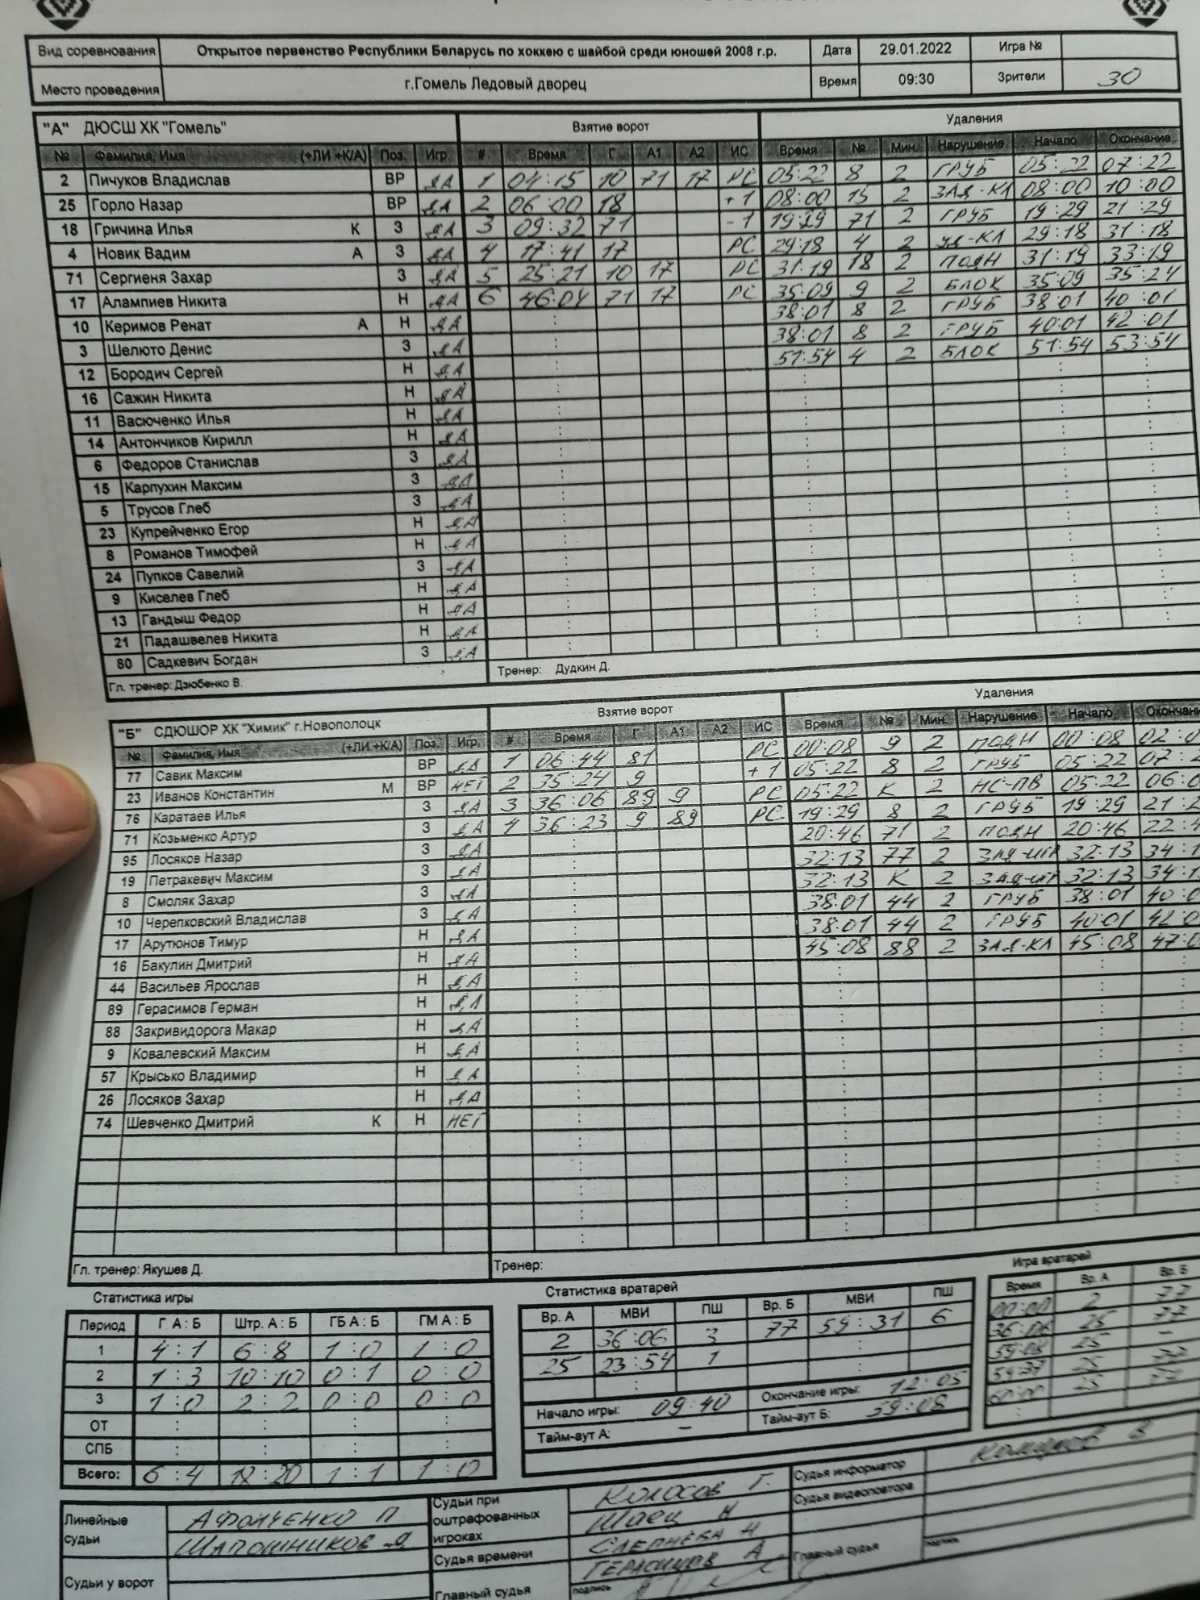 Вид соревнования Открытое первенство Республики Беларусь по хоккею с шайбой среди юношей 2008 г.р. Дата 29.01.2022 Игра №
Место проведения г.Гомель Ледовый дворец Время 09:30 Зрители 30
"А" ДЮСШ ХК "Гомель" Взятие ворот Удаления
№ Фамилия, Имя (+ЛИ +К/А) Поз. Игр. # Время Г А1 А2 ИС Время № Мин. Нарушение Начало Окончание
2 Пичуков Владислав ВР ДА 1 04:15 10 71 17 РС 05:22 8 2 ГРУБ 05:22 07:22
25 Горло Назар ВР ДА 2 06:00 18 +1 08:00 15 2 ЗАД-КЛ 08:00 10:00
18 Гричина Илья К З ДА 3 09:32 71 -1 19:29 71 2 ГРУБ 19:29 21:29
4 Новик Вадим А З ДА 4 17:41 17 РС 29:18 4 2 УД-КЛ 29:18 31:18
71 Сергиеня Захар З ДА 5 25:21 10 17 РС 31:19 18 2 ПОДН 31:19 33:19
17 Алампиев Никита Н ДА 6 46:04 71 17 РС 35:09 9 2 БЛОК 35:09 35:24
10 Керимов Ренат А Н ДА 38:01 8 2 ГРУБ 38:01 40:01
3 Шелюто Денис З ДА 38:01 8 2 ГРУБ 40:01 42:01
12 Бородич Сергей Н ДА 51:54 4 2 БЛОК 51:54 53:54
16 Сажин Никита Н ДА
11 Васюченко Илья Н ДА
14 Антончиков Кирилл Н ДА
6 Федоров Станислав З ДА
15 Карпухин Максим З ДА
5 Трусов Глеб З ДА
23 Купрейченко Егор Н ДА
8 Романов Тимофей Н ДА
24 Пупков Савелий З ДА
9 Киселев Глеб Н ДА
13 Гандыш Федор Н ДА
21 Падашвелев Никита Н ДА
80 Садкевич Богдан З ДА
Гл. тренер: Дзюбенко В. Тренер: Дудкин Д.
"Б" СДЮШОР ХК "Химик" г.Новополоцк Взятие ворот Удаления
№ Фамилия, Имя (+ЛИ +К/А) Поз. Игр. # Время Г А1 А2 ИС Время № Мин. Нарушение Начало
77 Савик Максим ВР ДА 1 06:44 81 РС 00:08 9 2 ПОДН 00:08
23 Иванов Константин М ВР НЕТ 2 35:24 9 +1 05:22 8 2 ГРУБ 05:22
76 Каратаев Илья З ДА 3 36:06 89 9 РС 05:22 К 2 НС-ПВ 05:22
71 Козьменко Артур З ДА 4 36:23 9 89 РС 19:29 8 2 ГРУБ 19:29
95 Лосяков Назар З ДА 20:46 71 2 ПОДН 20:46
19 Петракевич Максим З ДА 32:13 77 2 32:13
8 Смоляк Захар З ДА 32:13 К 2 32:13
10 Черепковский Владислав З ДА 38:01 44 2 ГРУБ 38:01
17 Арутюнов Тимур Н ДА 38:01 44 2 ГРУБ 40:01
16 Бакулин Дмитрий Н ДА 45:08 88 2 ЗАД-КЛ 45:08
44 Васильев Ярослав Н ДА
89 Герасимов Герман Н ДА
88 Закривидорога Макар Н ДА
9 Ковалевский Максим Н ДА
57 Крысько Владимир Н ДА
26 Лосяков Захар Н ДА
74 Шевченко Дмитрий К Н НЕТ
Гл. тренер: Якушев Д. Тренер:
Статистика игры Статистика вратарей Игра вратарей
Период Г А : Б Штр. А : Б ГБ А : Б ГМ А : Б Вр. А МВИ ПШ Вр. Б МВИ ПШ Время Вр. А Вр. Б
1 4:1 6:8 1:0 1:0 2 36:06 3 77 59:31 6 00:00 2 77
2 1:3 10:10 0:1 0:0 25 23:54 1 36:06 25 77
3 1:0 2:2 0:0 0:0 59:08 25 -
ОТ Начало игры: 09:40 Окончание игры: 12:05
СПБ Тайм-аут А: - Тайм-аут Б: 59:08
Всего: 6:4 18:20 1:1 1:0
Линейные судьи АФОНЧЕНКО П Судьи при оштрафованных игроках КОЛОСОВ Г. Судья информатор
ШАПОШНИКОВ Я ШВЕЦ Н Судья видеоповтора
Судья времени СЛЕПНЕВА Н Главный судья подпись
Судьи у ворот Главный судья ГЕРАСИМОВ А
подпись